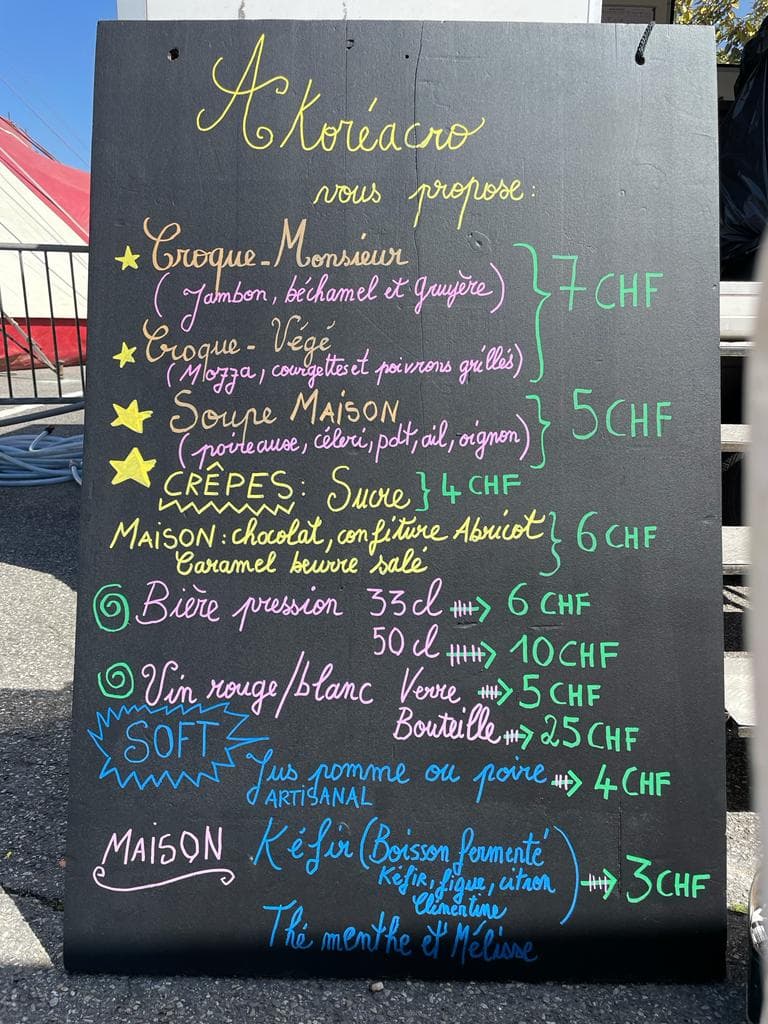 A Koréacro
vous propose :
Croque-Monsieur
(Jambon, béchamel et gruyère) } 7 CHF
Croque-Végé
(Mozza, courgettes et poivrons grillés)
Soupe MAISON } 5 CHF
(poireause, céleri, pdt, ail, oignon)
CRÊPES : Sucre } 4 CHF
MAISON : chocolat, confiture Abricot } 6 CHF
Caramel beurre salé
Bière pression 33 cl → 6 CHF
50 cl → 10 CHF
Vin rouge/blanc Verre → 5 CHF
Bouteille → 25 CHF
SOFT
Jus pomme ou poire → 4 CHF
ARTISANAL
MAISON Kéfir (Boisson fermenté
Kéfir, figue, citron → 3 CHF
Clémentine)
Thé menthe et Mélisse